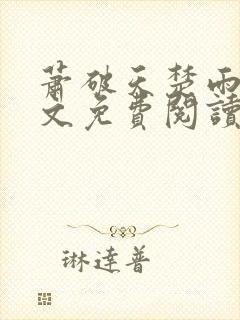 蕭破天楚雨
文免費閱讀
琳達普